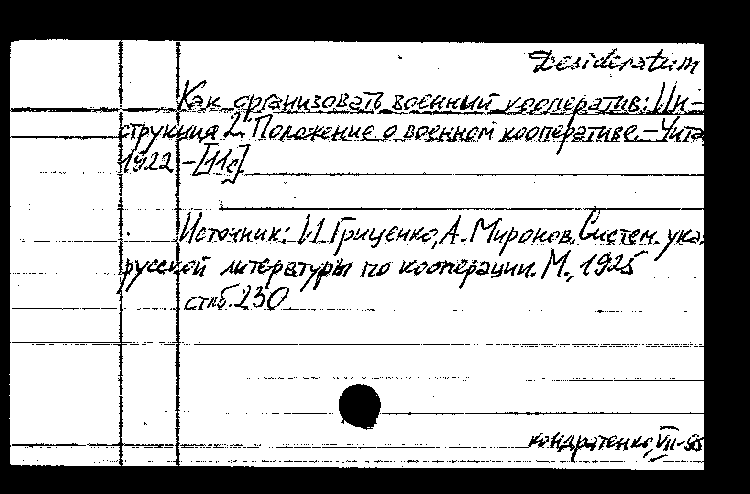 Desideratum
Как организовать военный кооператив: Ин-
струкция 2. Положение о военном кооперативе. – Чита
1922 – [11с].
Источник: И. Гриценко, А. Миронов. Систем. ука
русской литературы по кооперации. М., 1925
стлб. 230.
Кондратенко, VII-95